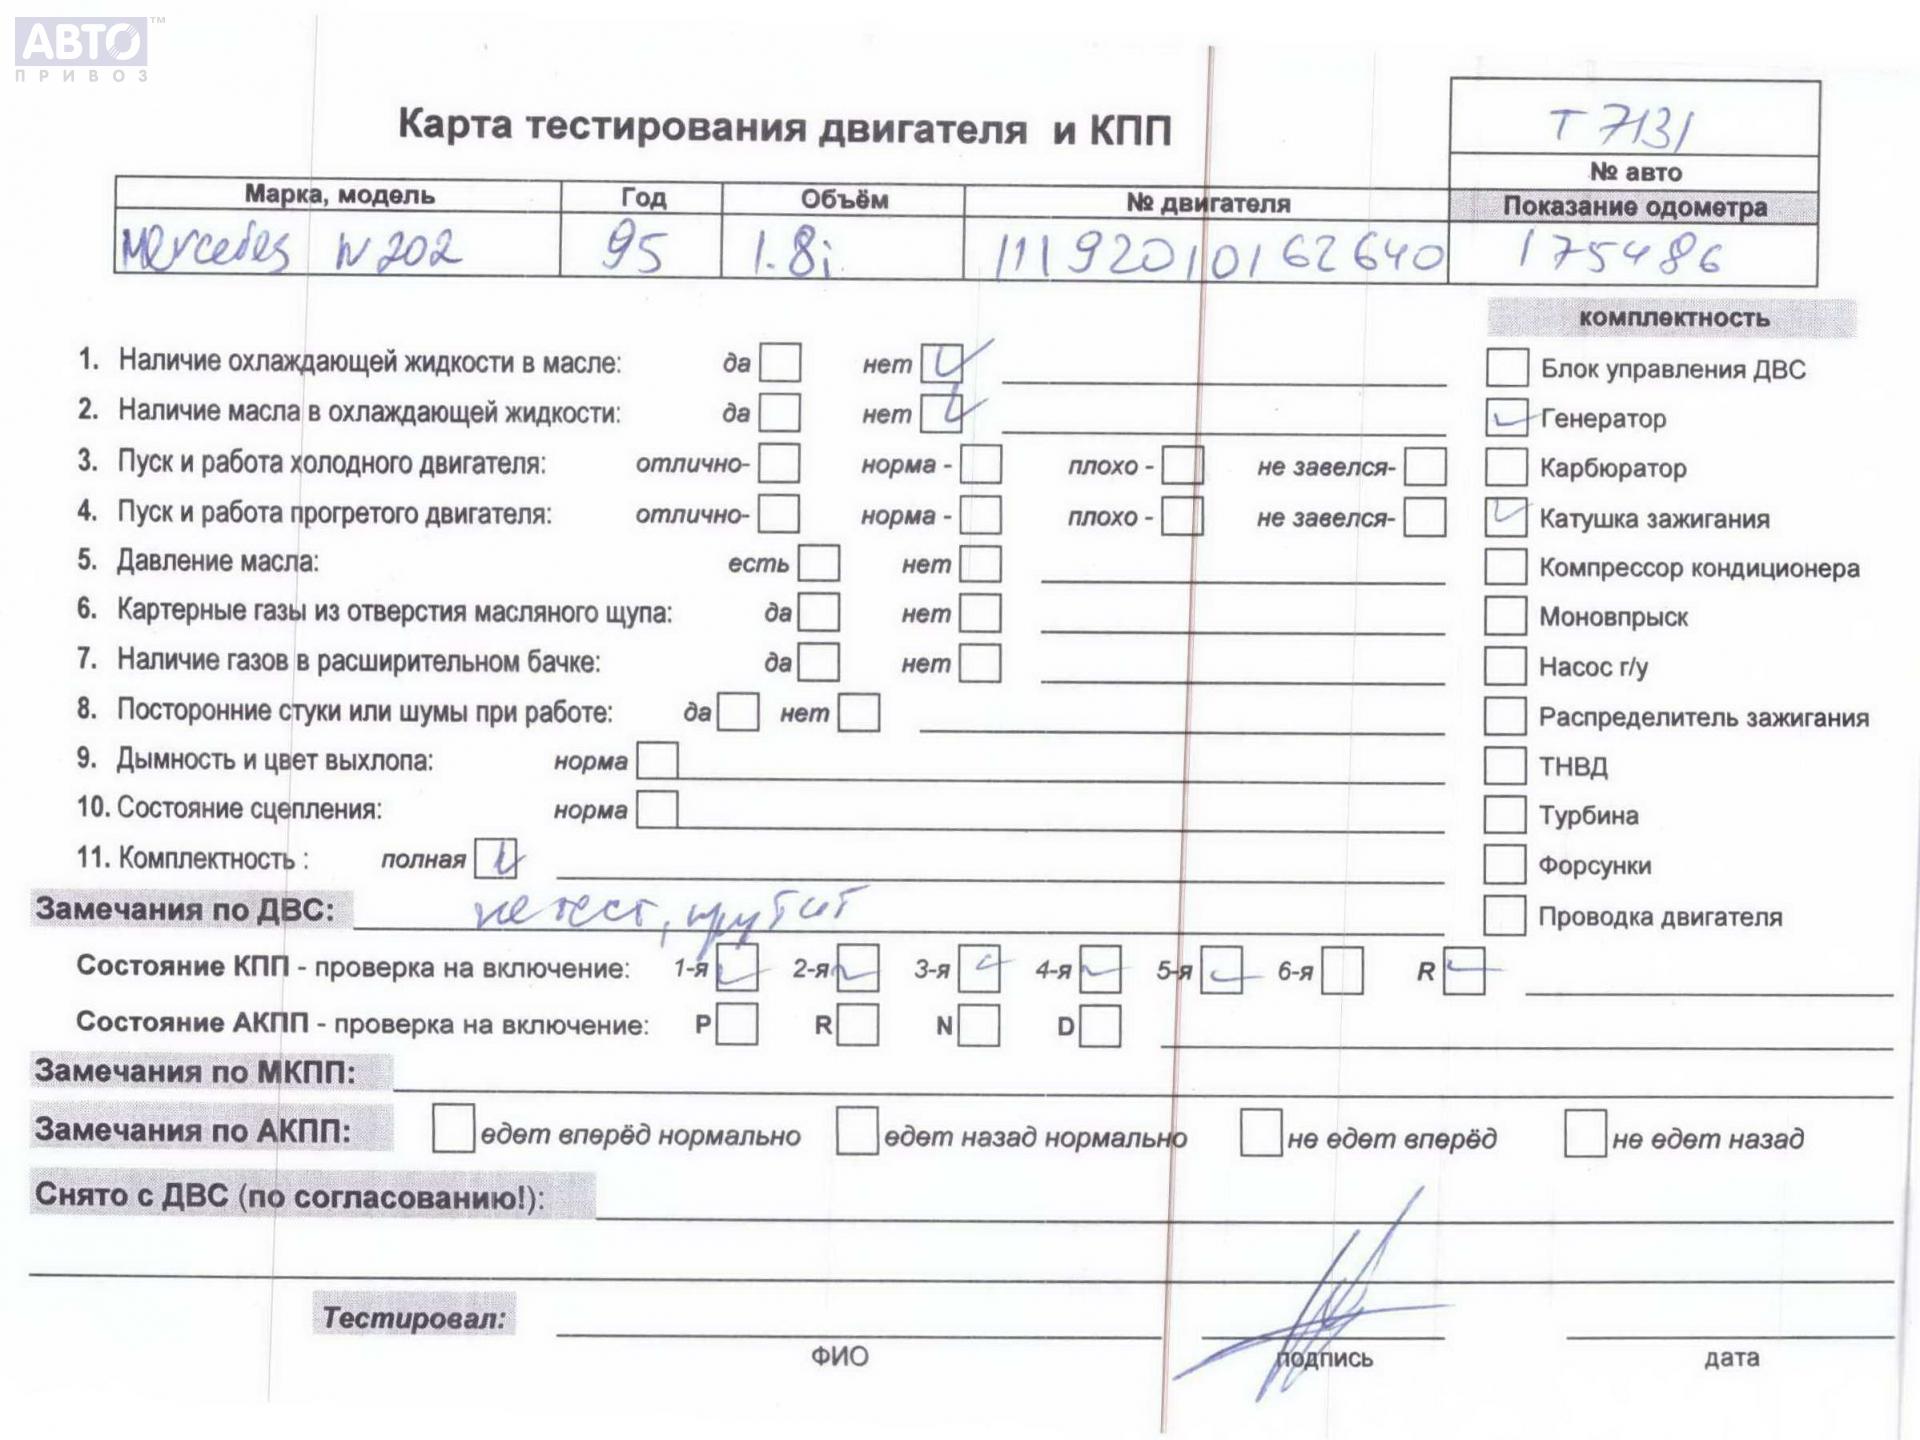 АВТО™
ПРИВОЗ
Карта тестирования двигателя и КПП
Т 7131
№ авто
Марка, модель Год Объём № двигателя Показание одометра
Mercedes W202 95 1.8i 11192010162640 175486
комплектность
1. Наличие охлаждающей жидкости в масле: да нет Блок управления ДВС
2. Наличие масла в охлаждающей жидкости: да нет Генератор
3. Пуск и работа холодного двигателя: отлично- норма - плохо - не завелся- Карбюратор
4. Пуск и работа прогретого двигателя: отлично- норма - плохо - не завелся- Катушка зажигания
5. Давление масла: есть нет Компрессор кондиционера
6. Картерные газы из отверстия масляного щупа: да нет Моновпрыск
7. Наличие газов в расширительном бачке: да нет Насос г/у
8. Посторонние стуки или шумы при работе: да нет Распределитель зажигания
9. Дымность и цвет выхлопа: норма ТНВД
10. Состояние сцепления: норма Турбина
11. Комплектность : полная Форсунки
Замечания по ДВС: не тест, крутит Проводка двигателя
Состояние КПП - проверка на включение: 1-я 2-я 3-я 4-я 5-я 6-я R
Состояние АКПП - проверка на включение: P R N D
Замечания по МКПП:
Замечания по АКПП: едет вперёд нормально едет назад нормально не едет вперёд не едет назад
Снято с ДВС (по согласованию!):
Тестировал:
ФИО подпись дата